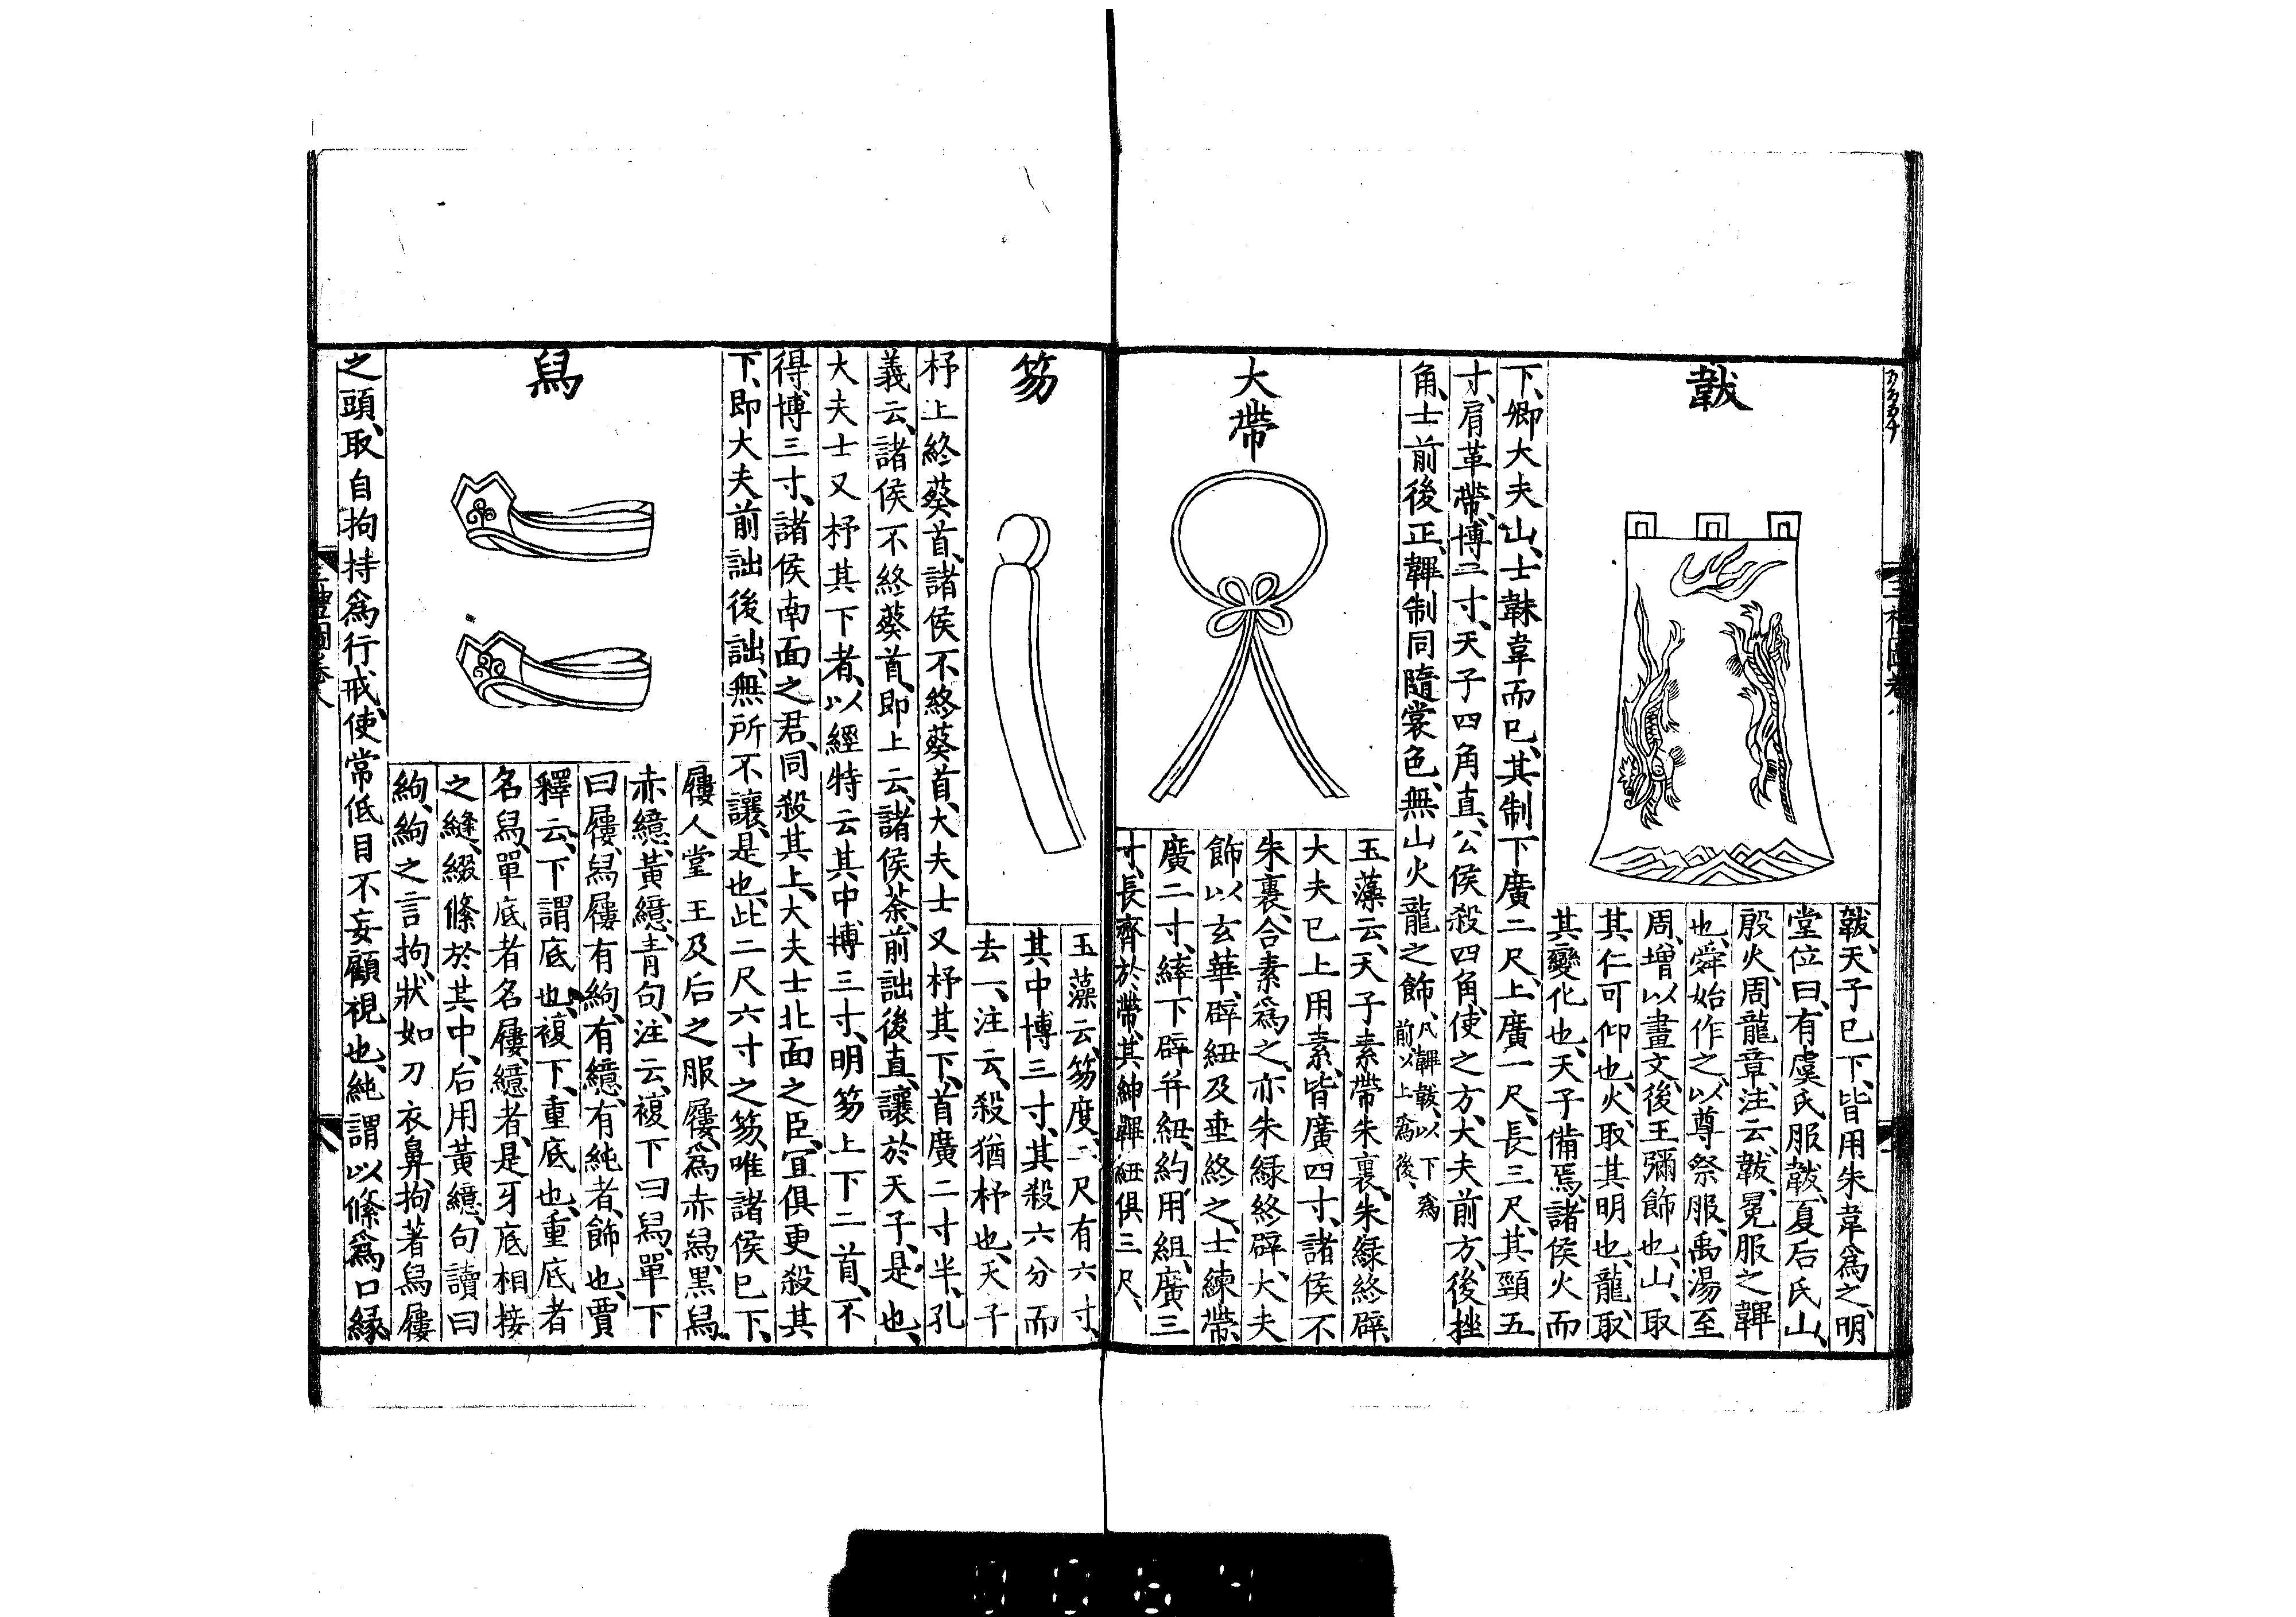 韍
韍、天子已下、皆用朱韋爲之、明
堂位曰、有虞氏服韍、夏后氏山、
殷火、周龍章、注云、韍、冕服之韠
也、舜始作之、以尊祭服、禹湯至
周、增以畫文、後王彌飾也、山、取
其仁可仰也、火、取其明也、龍、取
其變化也、天子備焉、諸侯火而
下、卿大夫山、士韎韋而已、其制下廣二尺、上廣一尺、長三尺、其頸五
寸、肩革帶、博二寸、天子四角直、公侯殺四角、使之方、大夫前方、後挫
角、士前後正、韠制同隨裳色、無山火龍之飾、凡韠韍、以下爲
前、以上爲後、
大帶
玉藻云、天子素帶朱裏、朱綠終辟、
大夫已上用素、皆廣四寸、諸侯不
朱裏、合素爲之、亦朱綠終辟、大夫
飾以玄華、辟紐及垂終之、士練帶、
廣二寸、繂下辟并紐、約用組、廣三
寸、長齊於帶、其紳韠紐俱三尺、
笏
玉藻云、笏度二尺有六寸、
其中博三寸、其殺六分而
去一、注云、殺猶杼也、天子
杼上終葵首、諸侯不終葵首、大夫士又杼其下、首廣二寸半、孔
義云、諸侯不終葵首、即上云、諸侯荼、前詘後直、讓於天子、是也、
大夫士又杼其下者、以經特云其中博三寸、明笏上下二首、不
得博三寸、諸侯南面之君、同殺其上、大夫士北面之臣、宜俱更殺其
下、即大夫前詘後詘、無所不讓、是也、此二尺六寸之笏、唯諸侯已下、
舄
屨人堂王及后之服屨、爲赤舄、黑舄、
赤繶、黃繶、青句、注云、複下曰舄、單下
曰屨、舄屨有絇、有繶、有純者、飾也、賈
釋云、下謂底也、複下、重底也、重底者
名舄、單底者名屨、繶者、是牙底相接
之縫、綴絛於其中、后用黃繶、句讀曰
絇、絇之言拘、狀如刀衣鼻、拘著舄屨
之頭、取自拘持爲行戒、使常低目不妄顧視也、純謂以絛爲口緣、
三禮圖卷八